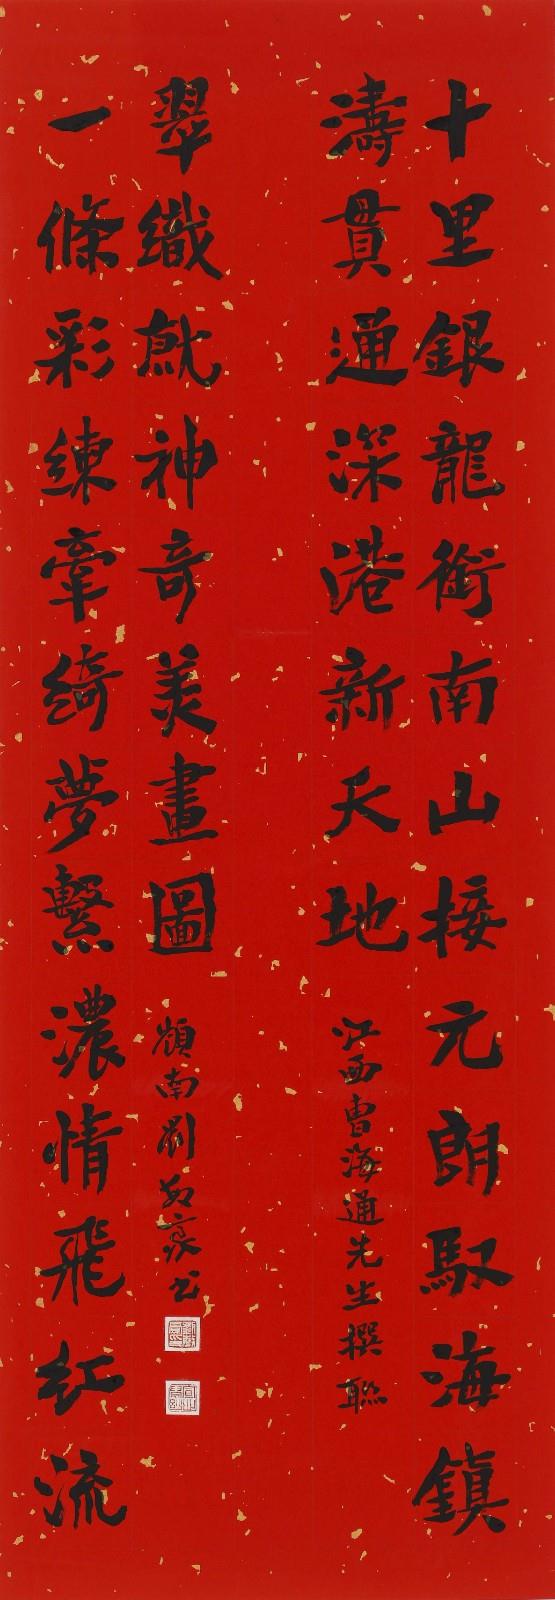 十里銀龍銜南山接元朗馭海鎮
濤貫通深港新天地
江西曹海通先生撰聯
一條彩練牽綺夢繫濃情飛紅流
翠織就神奇美畫圖
南劉豪书